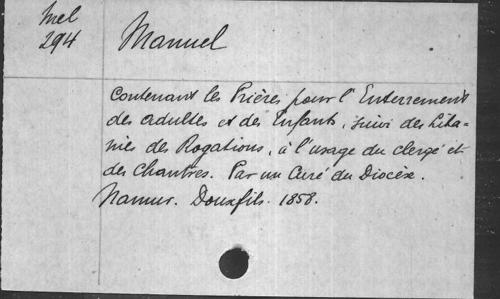 Mel
294
Manuel
Contenant les Prières pour l'Enterrement
des adultes et des Enfants, suivi des Lita=
nies des Rogations, à l'usage du clergé et
des Chantres. Par un Curé du Diocèse.
Namur. Douxfils. 1858.